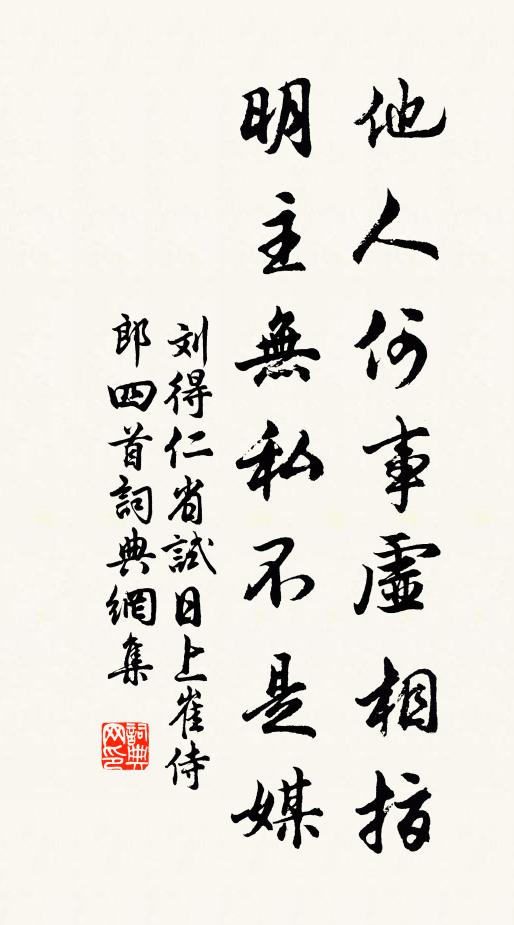 他人何事虛相指
明主無私不是媒
刘得仁省試日上崔侍
郎四首詞典網集
詞典网印